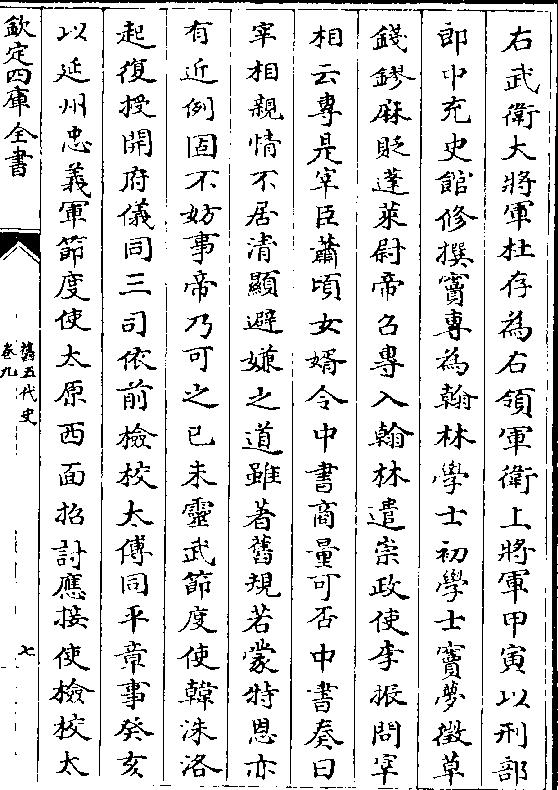 右武衛大將軍杜存為右領軍衛上將軍甲寅以刑部
郎中充史館修撰竇專為翰林學士初學士竇夢徵草
錢鏐麻貶蓬萊尉帝召專入翰林遣崇政使李振問宰
相云專是宰臣蕭頃女婿令中書商量可否中書奏曰
宰相親情不居清顯避嫌之道雖著舊規若蒙特恩亦
有近例固不妨事帝乃可之已未靈武節度使韓洙洛
起復授開府儀同三司依前檢校太傅同平章事癸亥
以延州忠義軍節度使太原西面招討應接使檢校太
欽定四庫全書
舊五代史
卷九
七